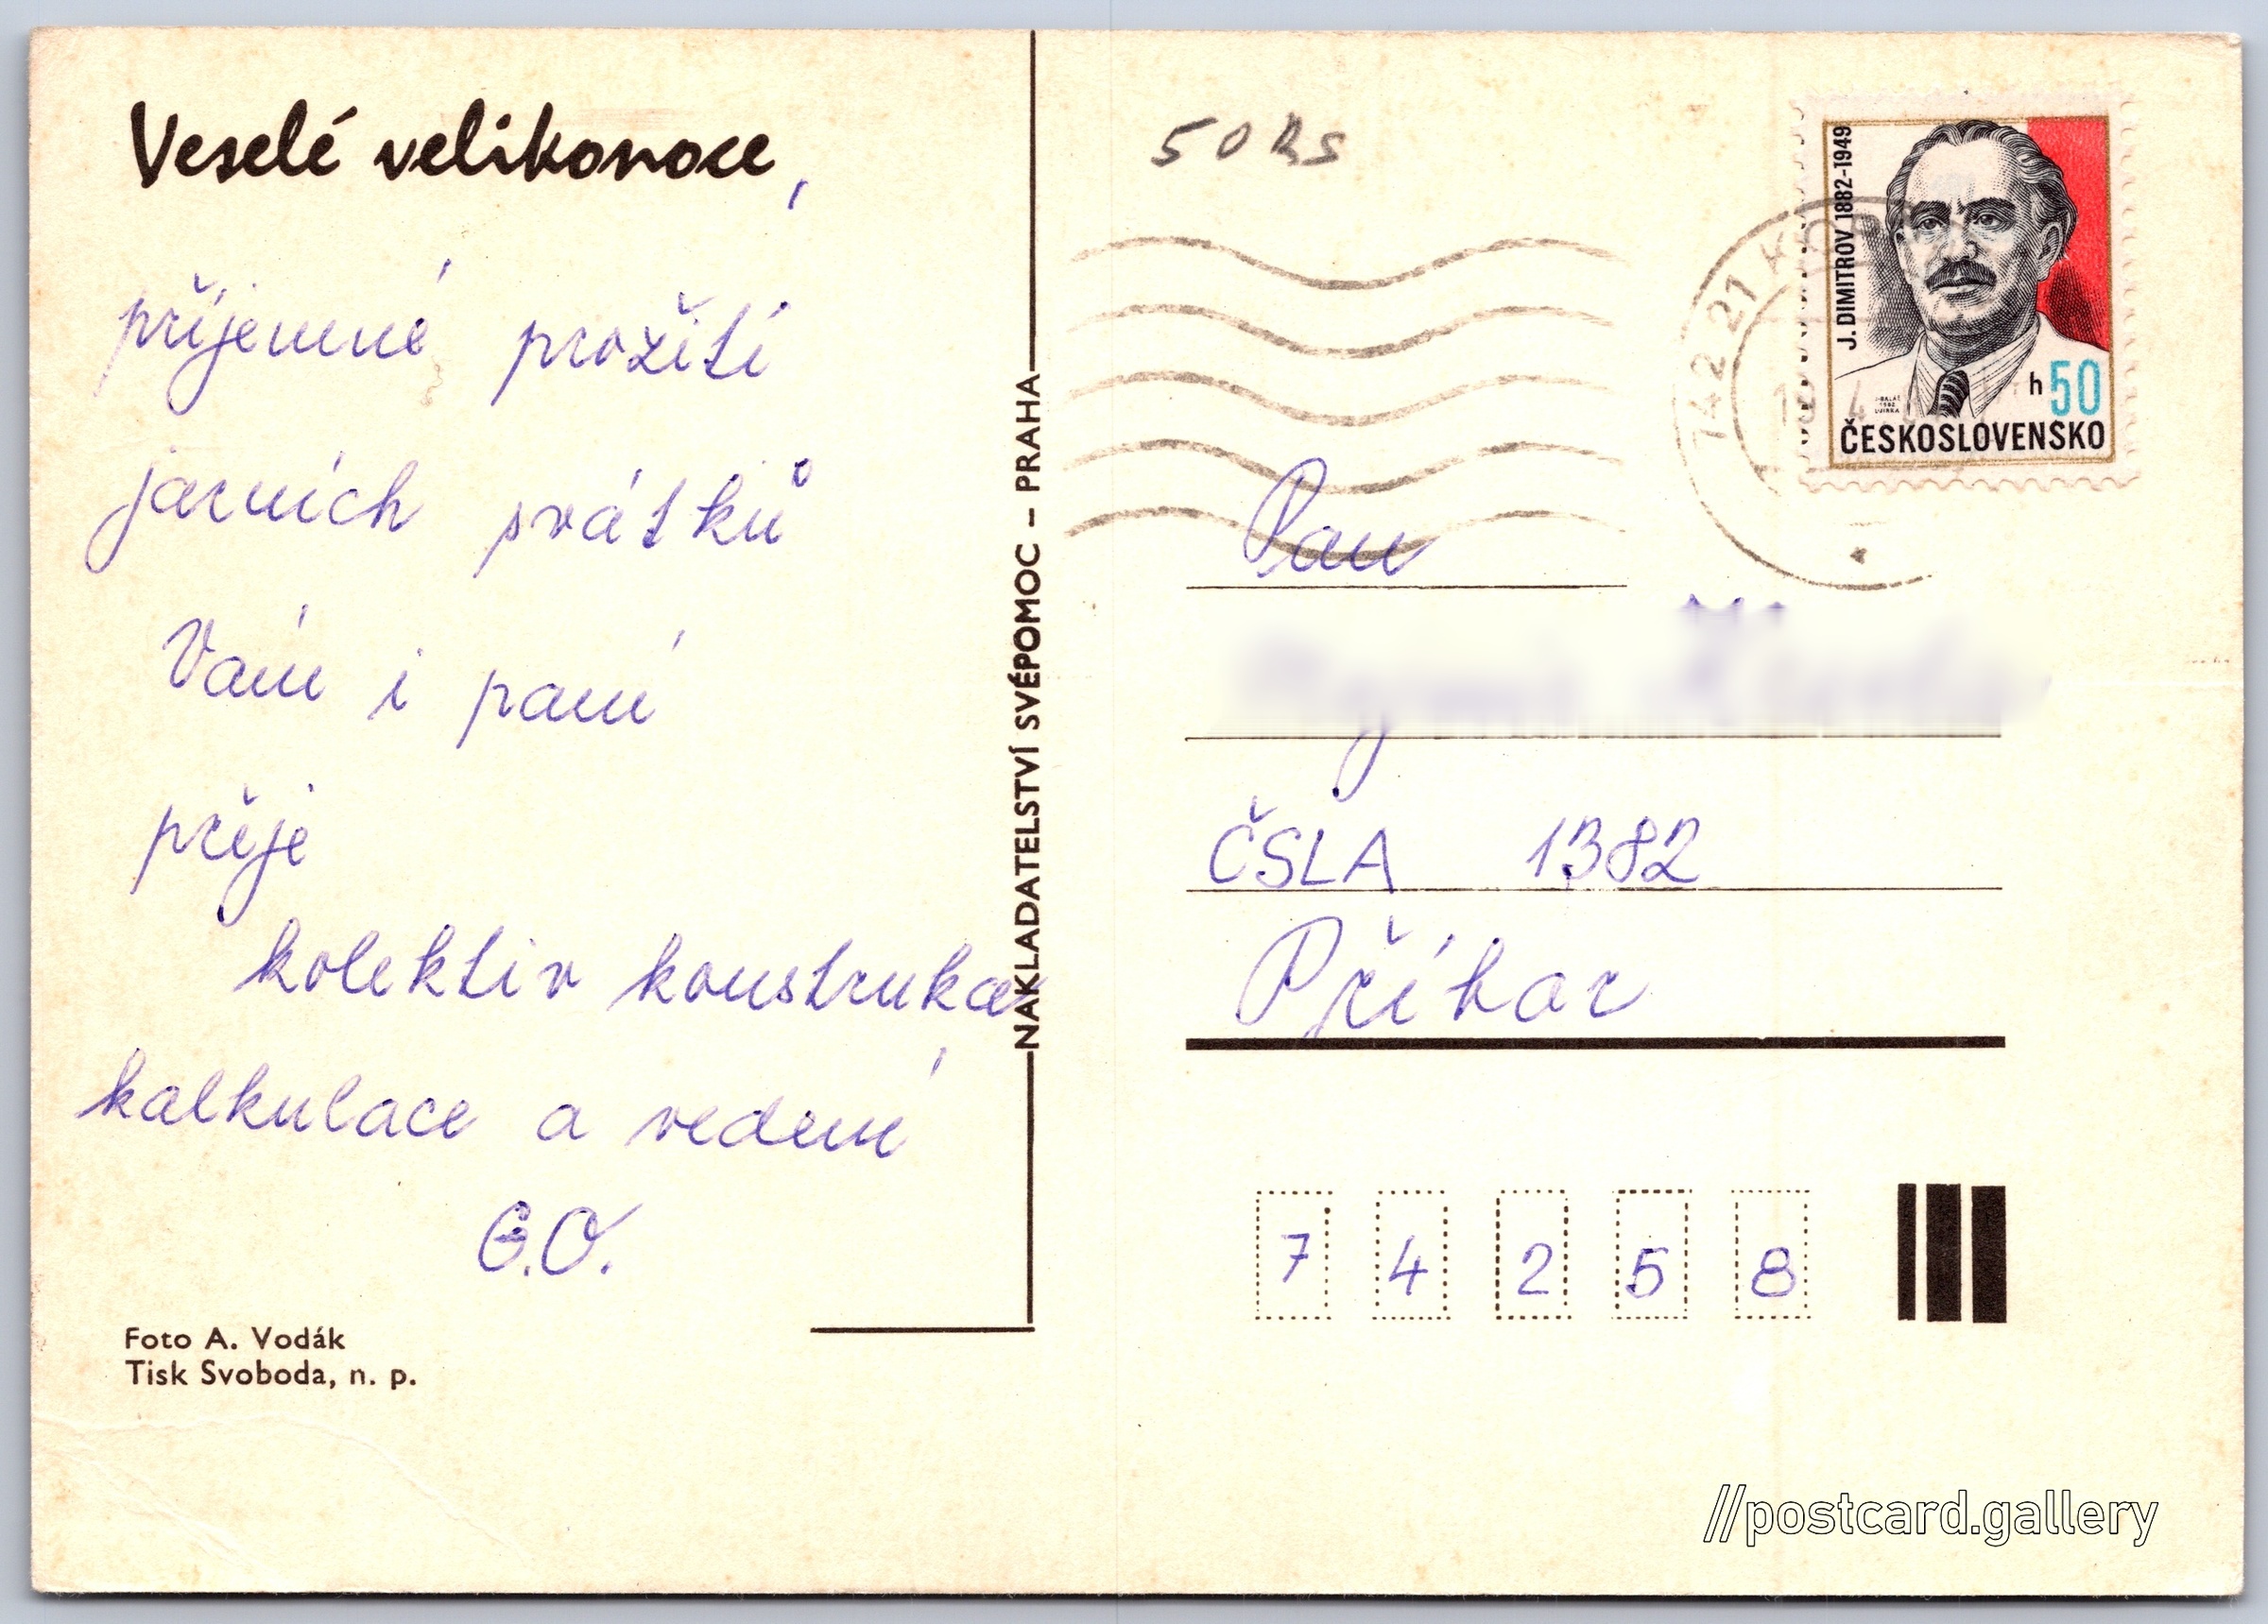 Veselé velikonoce,
příjemné prožití
jarních svátků
Vám i paní
přeje
kolektiv konstrukce
kalkulace a vedení
G.O.
Foto A. Vodák
Tisk Svoboda, n. p.
NAKLADATELSTVÍ SVÉPOMOC – PRAHA
50
742 21 KO
4
J. DIMITROV 1882-1949
h 50
ČESKOSLOVENSKO
Pan
ČSLA 1382
Příbor
7 4 2 5 8
//postcard.gallery